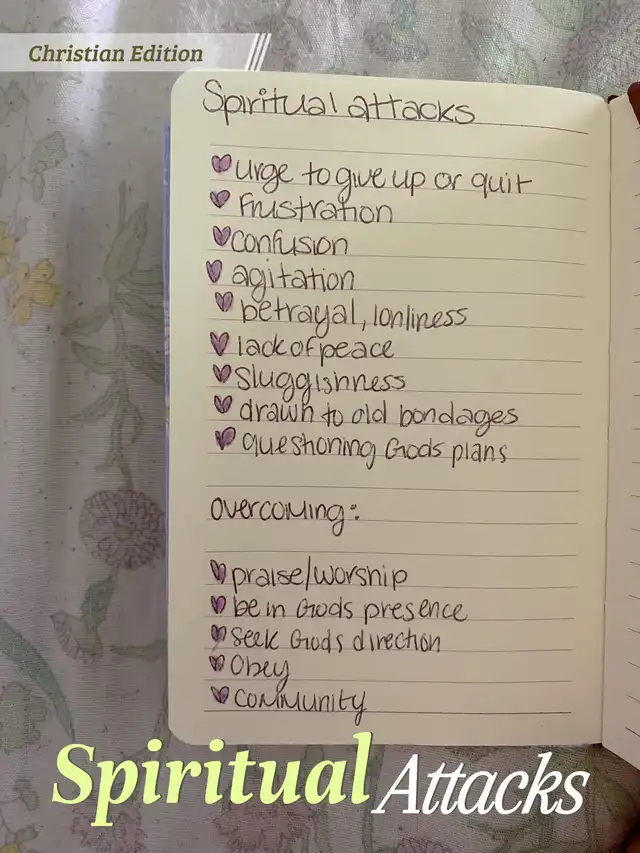 Christian Edition
Spiritual attacks
urge to give up or quit
Frustration
confusion
agitation
betrayal, lonliness
lack of peace
Sluggishness
drawn to old bondages
questioning Gods plans
overcoming:
praise/worship
be in Gods presence
Seek Gods direction
Obey
community
Spiritual Attacks